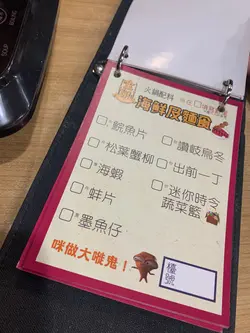 火鍋配料
海鮮及麵食
□鯇魚片
□松葉蟹柳
□海蝦
□蚌片
□墨魚仔
□讚岐烏冬
□出前一丁
□迷你時令
蔬菜籃
咪做大嘥鬼!
檯號